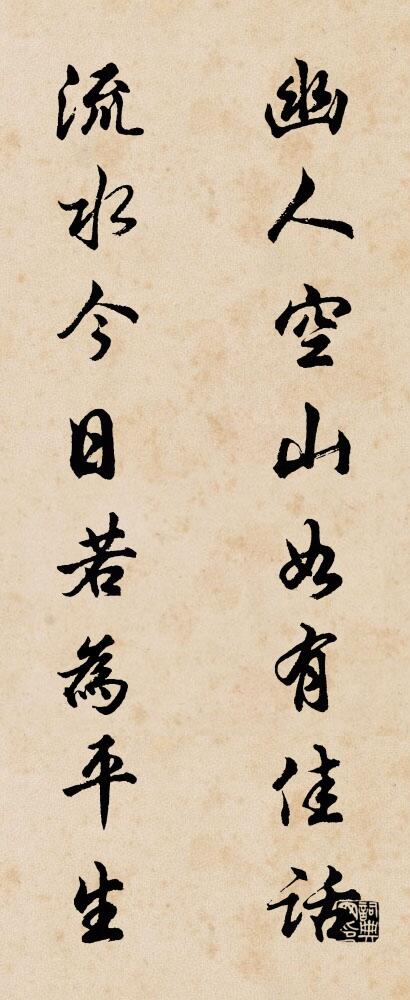 幽人空山如有佳話
流水今日若為平生